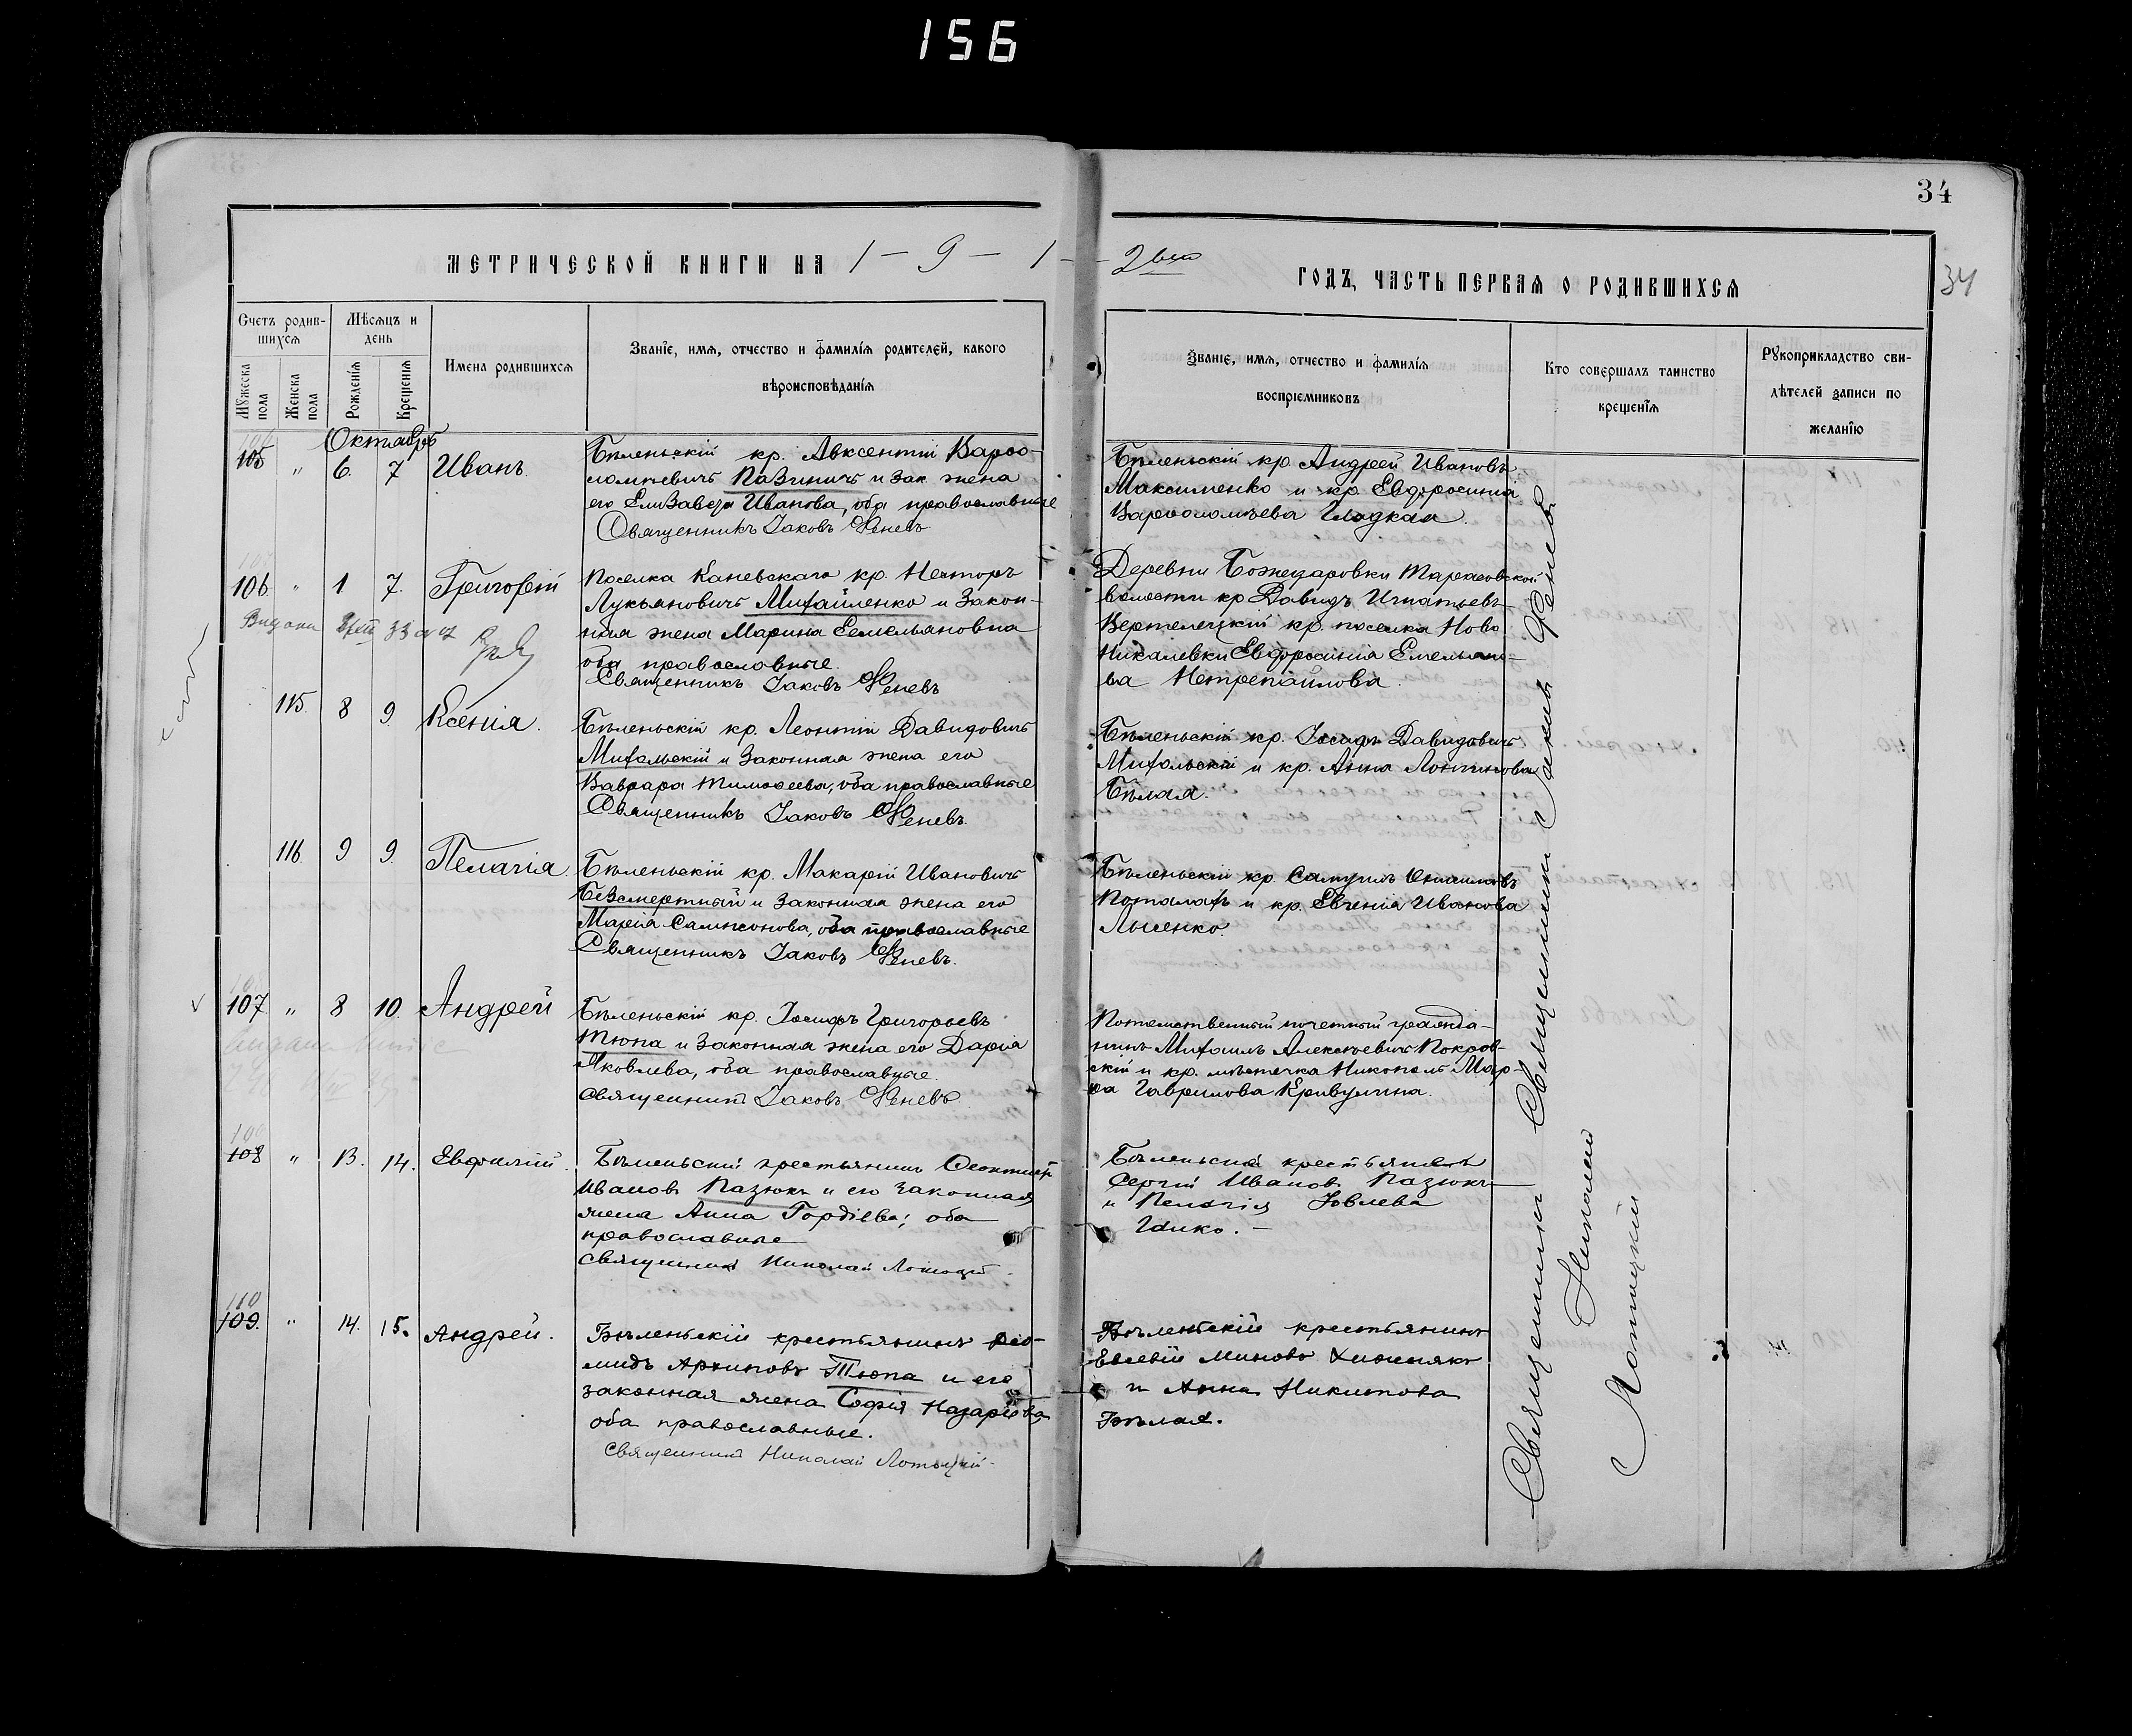 156
34
34
МЕТРИЧЕСКОЙ КНИГИ НА 1-9-1-2 ГОДЪ, ЧАСТЬ ПЕРВАЯ О РОДИВШИХСЯ
Счетъ родив-
шихся
Мужеска пола
Женска пола
Мѣсяцъ и
день
Рожденія
Крещенія
Имена родившихся
Званіе, имя, отчество и фамилія родителей, какого
вѣроисповѣданія
Званіе, имя, отчество и фамилія
воспріемниковъ
Кто совершалъ таинство
крещенія
Рукоприкладство сви-
дѣтелей записи по
желанію
Октябрь
105 " 6 7 Иванъ
Бѣленьскій кр. Авксентій Варѳо-
ломѣевичъ Пазиничъ и зак жена
его Елизавета Иванова, оба православные
Священникъ Іаковъ
Бѣленьскій кр. Андрей Ивановъ
Максименко и кр. Евфросинія
Варѳоломѣева Гладкая.
106 " 1 7. Григорій
Поселка Каневскаго кр. Несторъ
Лукьяновичъ Михайленко и закон-
ная жена Марина Емельяновна
оба православные.
Священникъ Іаковъ
Деревни Божедаровки Тарасовской
волости кр Давидъ Игнатьевъ
Вертелецкій кр. поселка Ново
Николевки Евфросинія Емельяно-
ва Нетрепайлова.
115. 8 9. Ксенія.
Бѣленьскій кр. Леонтій Давидовичъ
Михальскій и законная жена его
Варвара Тимоѳеева, оба православные
Священникъ Іаковъ
Бѣленьскій кр. Іосифъ Давидовичъ
Михальскій и кр. Анна Лонгинова
Бѣлая.
116 9 9. Пелагія.
Бѣленьскій кр. Макарій Ивановичъ
Безсмертный и законная жена его
Марія Сампсонова, оба православные
Священникъ Іаковъ
Бѣленьскій кр. Самуилъ
и кр. Евгенія Иванова
Лысенко.
108
107 " 8 10. Андрей
Бѣленьскій кр. Іосифъ Григорьевъ
Тюпа и законная жена его Дарія
Яковлева, оба православные.
Священникъ Іаковъ
Потомственный почетный гражда-
нинъ Михаилъ Алексѣевичъ Покров-
скій и кр. мѣстечка Никополь Мар-
ѳа Гаврилова
109
108 " 13. 14. Евфимій.
Бѣленьскій крестьянинъ
Ивановъ Пазюкъ и его законная
жена Анна Гордіева; оба
православные
Священникъ Николай Лотоцкій
Бѣленьскій крестьянинъ
Сергій Ивановъ Пазюкъ
и Пелагія Іовлева
110
109. " 14. 15. Андрей.
Бѣленьскій крестьянинъ Дио-
мидъ Архиповъ Тюпа и его
законная жена Софія Назаріева
оба православные.
Священникъ Николай Лотоцкій
Бѣленьскій крестьянинъ
Евсевій Миновъ Хижнякъ
и Анна Никитова
Бѣлая.
Священникъ Іаковъ
Священникъ Николай
Лотоцкій